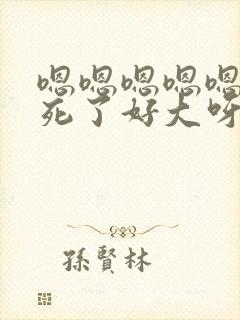 嗯嗯嗯嗯嗯
死了好大呀
孫賢林